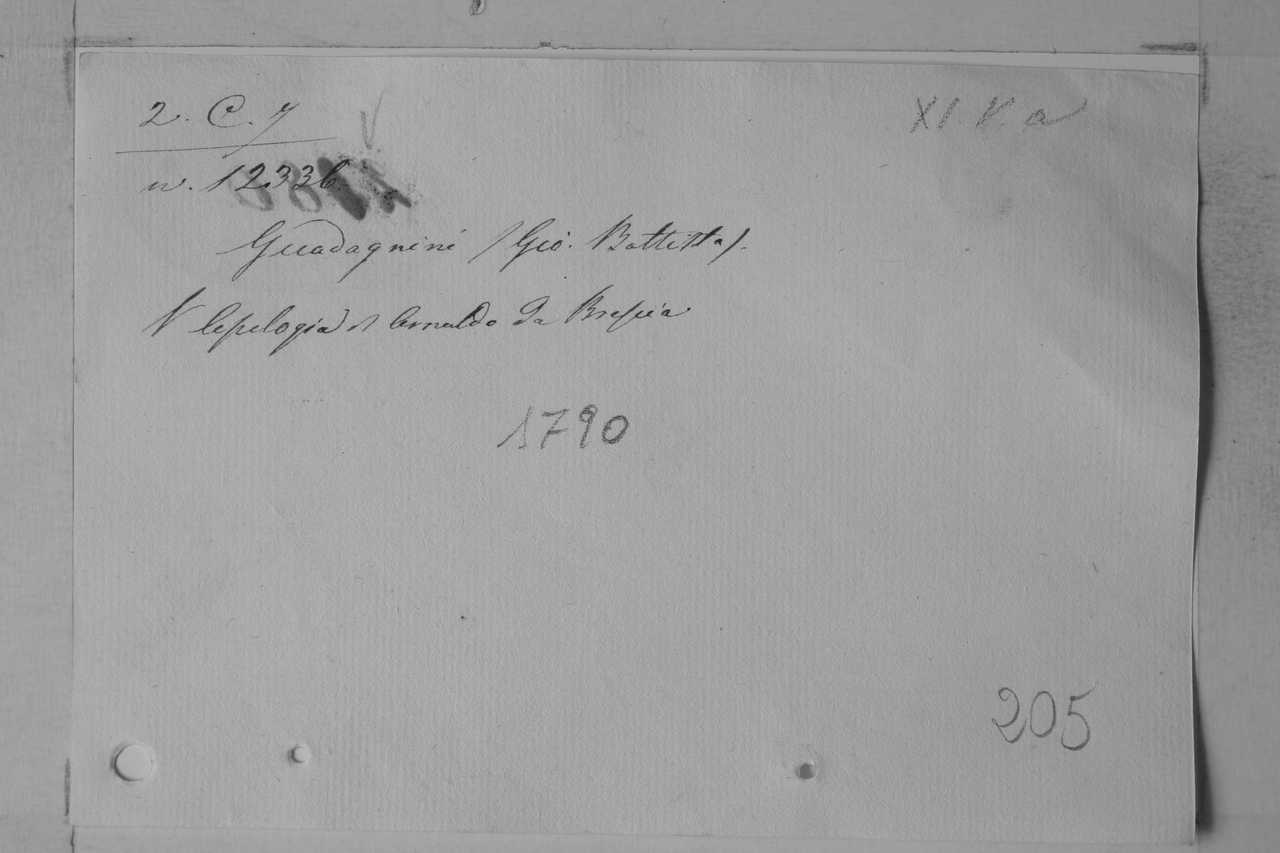 2. C. 7
XI V. a
n. 12336
Guadagnini (Gio. Battista).
V Apologia di Arnaldo da Brescia
1790
205